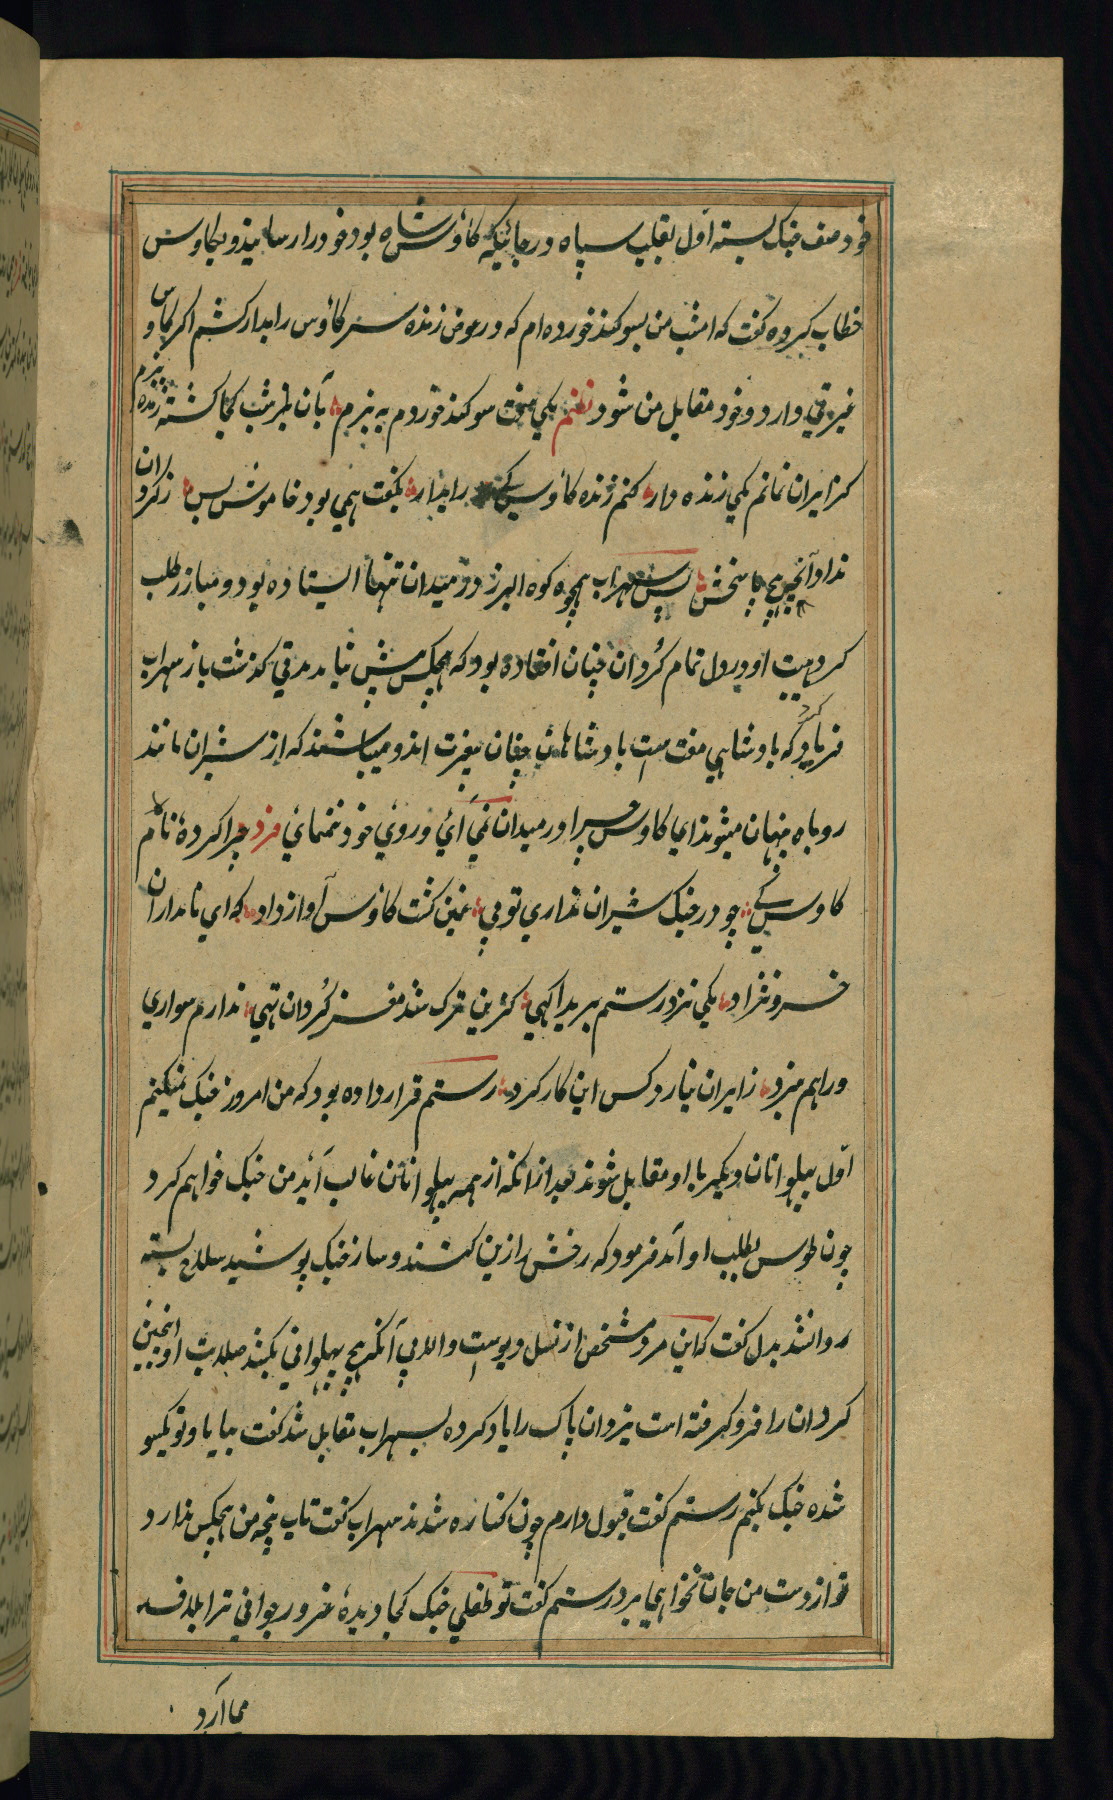 خود صف جنک بسته اول بقلب سپاه در جائیکه کاؤس شاه بود خود را رسانیذ و بکاوس
خطاب کرده کفت که امشب من سوکند خورده ام که در عوض زنده سر کاؤس را بدار کشم اکر کاوس
غیرتی دارد و خود مقابل من شود نظم یکی سخت سوکند خوردم به بزم بآن شب کجا کشته شد ژنده رزم
کز ایران نمانم یکی زنده دار کنم زنده کاؤس کی را بدار بکفت همی بود خاموش بس ز کردان
نداد آنچ هیچ پاسخش پس سهراب همچو کوه البرز در میدان تنها ایستاده بود و مبارز طلب
کرد هیبت او در دل تمام کردان چنان افتاده بود که هیچکس پیش نیامد مدتی کذشت باز سهراب
فریاد کرد که بادشاهی مفت است بادشاهان چنان بیغرت اند و میباشند که از شیران مانند
روباه پنهان میشوند ای کاوس چرا در میدان نمی آئی و روی خود نمینمائی فرد چرا کرده نام
کاوس کی چو در جنک شیران نداری تو پی غمین کشت کاؤس آواز داد که ای نامداران
فرخ نژاد یکی نزد رستم برید آکهی کزین ترک شد مغز کردان تهی ندارم سواری
ورا هم نبرد ز ایران نیارد کس این کار کرد رستم قرار داده بود که من امروز جنک نمیکنم
اول پهلوانان دیکر با او مقابل شوند بعد از آنکه از همه پهلوانان غالب آید من جنک خواهم کرد
چون طوس بطلب او آمد فرمود که رخش را زین کنند و ساز جنک پوشید سلاح بسته
روانشد بدل کفت که این مرد مشخص از نسل دیوست والا بی آنکه هیچ پهلوانی بکشد صلابت او انچنین
کردان را فرو کرفته است یزدان پاک را یاد کرده بسهراب مقابل شد کفت بیا یا و تو یکسو
شده جنک بکنیم رستم کفت قبول دارم چون کناره شدند سهراب کفت تاب پنجه من هیچکس ندارد
تو از دست من جان نخواهی برد رستم کفت تو طفلی جنک کجا دیدۀ غرور جوانی ترا بلاف
می آرد